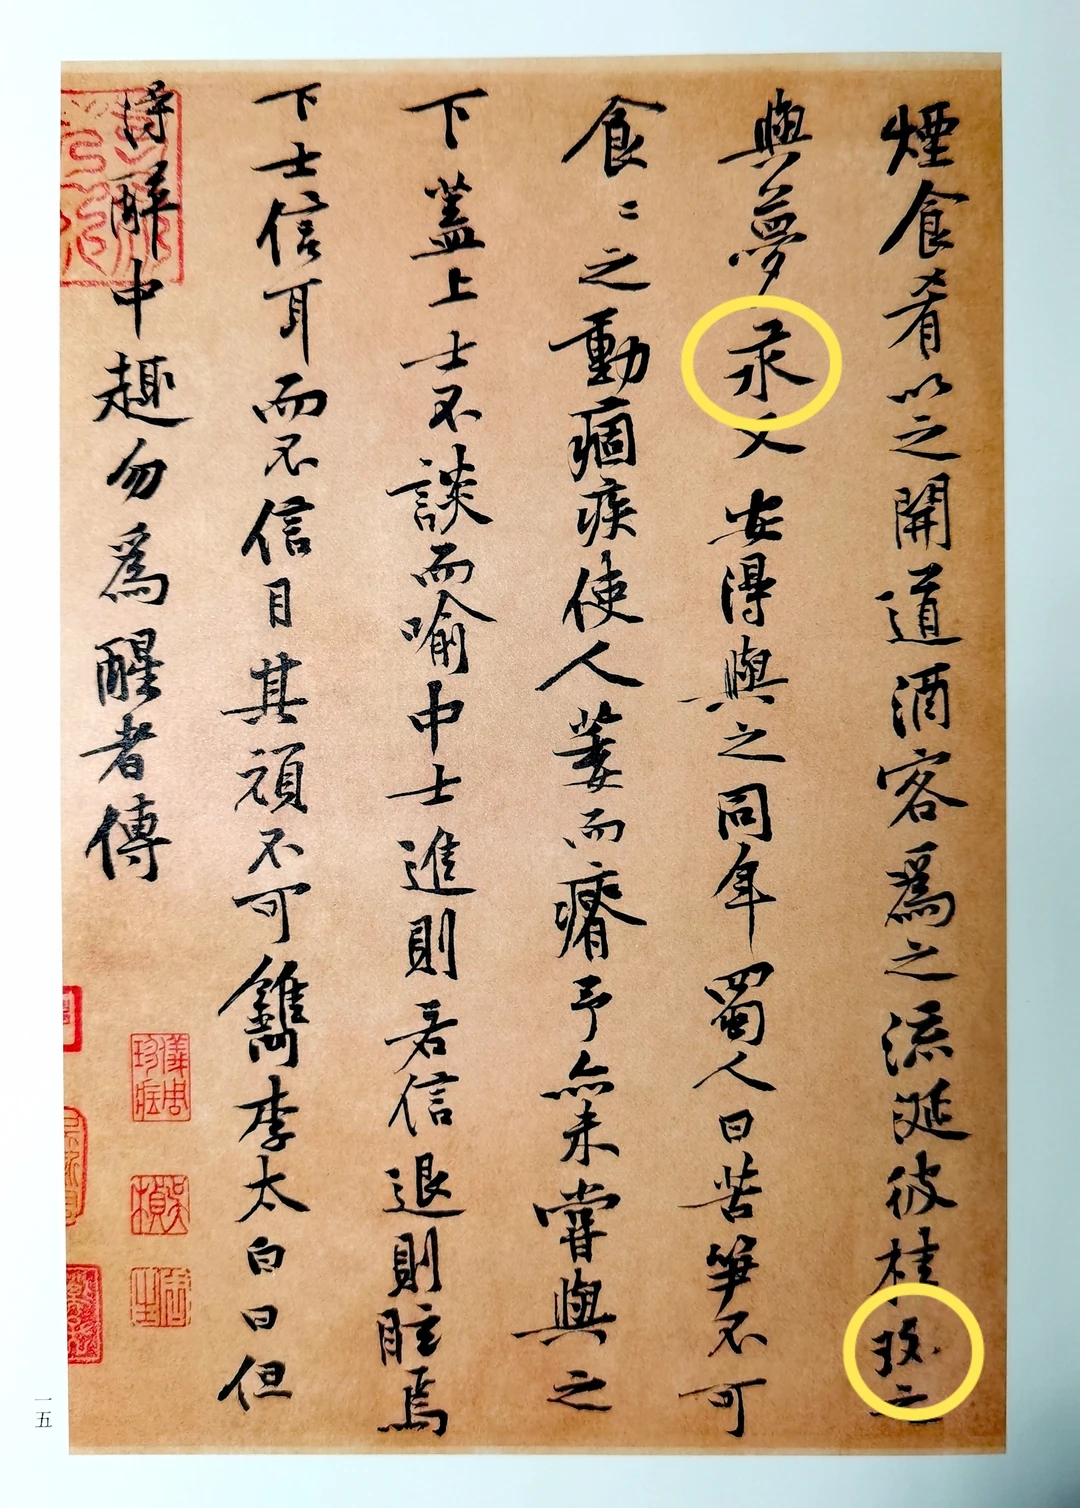 煙食肴以之開道酒客爲之流涎彼桂之
與夢汞又安得與之同年蜀人曰苦笋不可
食〻之動痼疾使人萎而瘠予亦未嘗與之
下蓋上士不談而喻中士進則若信退則眩焉
下士信耳而不信目其頑不可鐫李太白曰但
得醉中趣勿爲醒者傳
儀周珍藏
一五